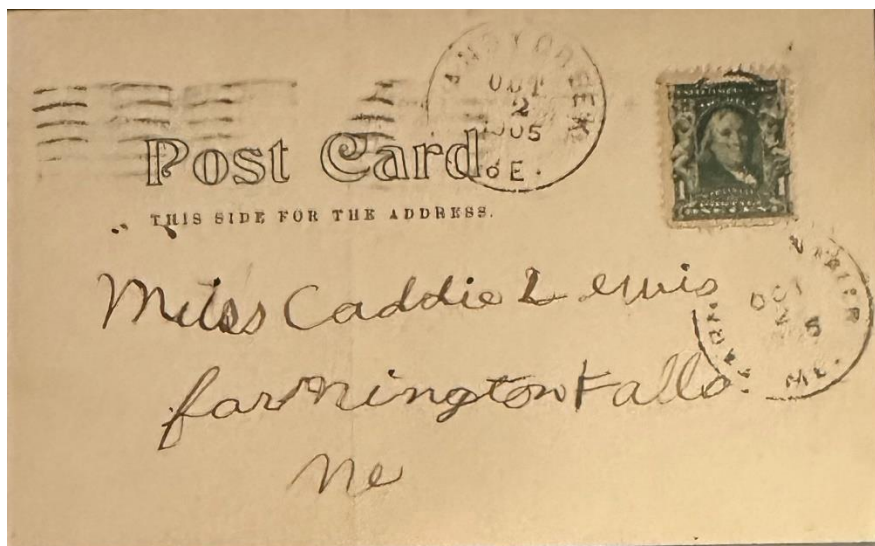 OCT
2
1905
ME.
Post Card
THIS SIDE FOR THE ADDRESS.
1 1
ONE CENT
Miss Caddie Lewis
farmington Falls
Me
OCT
2
ME.